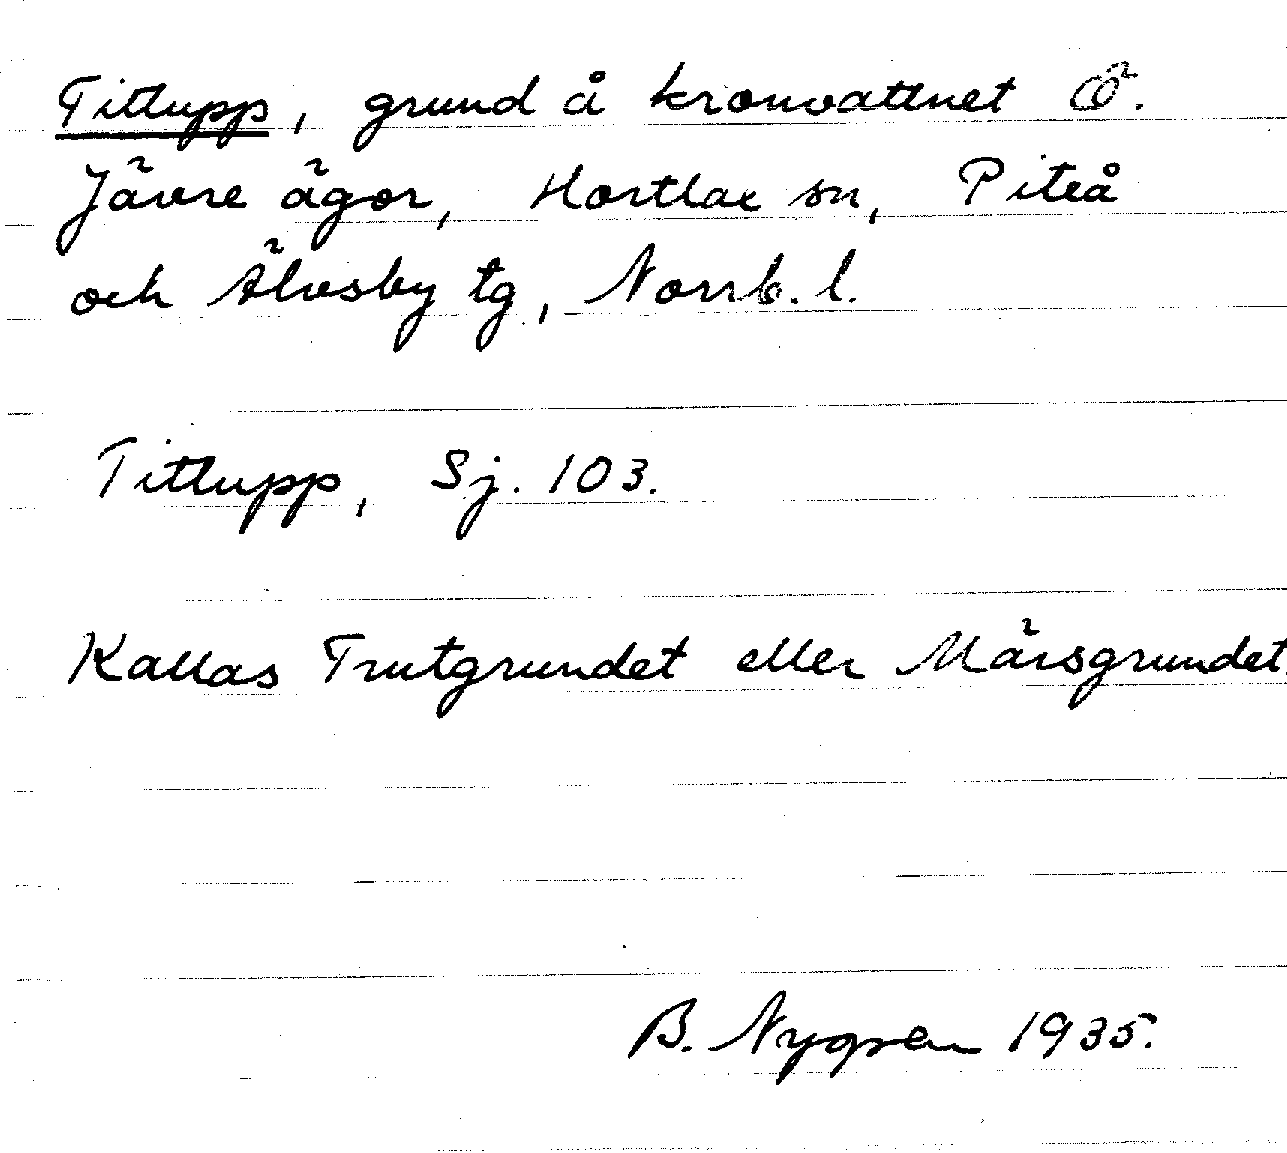 Tittupp, grund å kronvattnet Ö.
Jävre ägor, Hortlax sn, Piteå
och Älvsby tg, Norrb. l.
Tittupp, Sj. 103.
Kallas Trutgrundet eller Märsgrundet.
B. Nygren 1935.